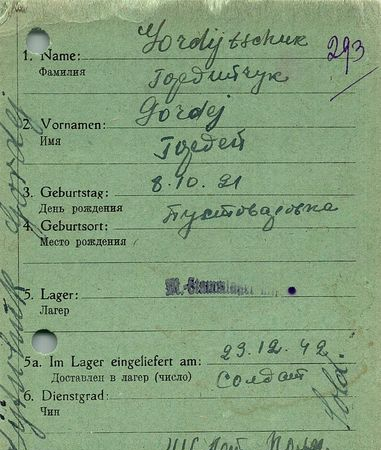 293
1. Name: Gordijtschuk
Фамилия Гордийчук
2. Vornamen: Gordej
Имя Гордей
3. Geburtstag: 8.10.21
День рождения
4. Geburtsort: Пустоваровка
Место рождения
5. Lager: M.-Stammlager
Лагер
5a. Im Lager eingeliefert am: 23.12.42
Доставлен в лагер (число) солдат
6. Dienstgrad: Sold.
Чин
Gordej